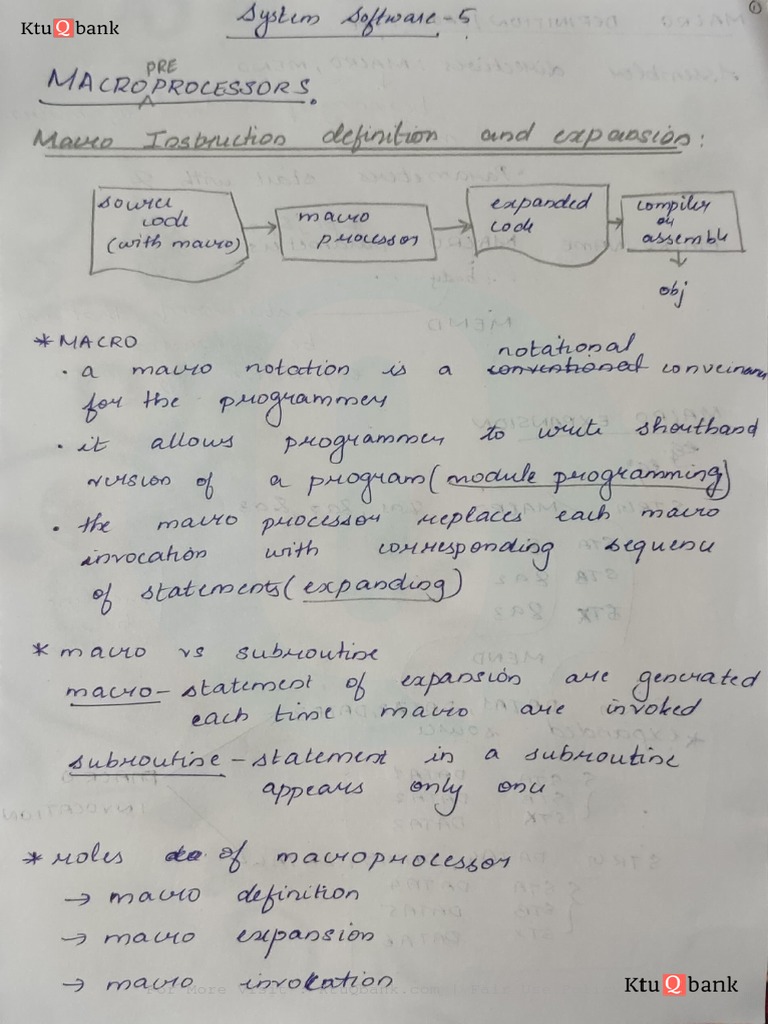 KtuQbank
System Software - 5
①
PRE
MACROPROCESSORS.
Macro Instruction definition and expansion:
source code (with macro)
macro processor
expanded code
compiler or assembler
obj
* MACRO
notational
· a macro notation is a conventional
for the programmer
· it allows programmer to write shorthand
version of a program (module programming)
· the macro processor replaces each macro
invocation with corresponding sequence
of statements (expanding)
* macro vs subroutine
macro - statement of expansion are generated
each time macro are invoked
subroutine - statement in a subroutine
appears only once
* roles of macroprocessor
→ macro definition
→ macro expansion
→ macro invocation
KtuQbank